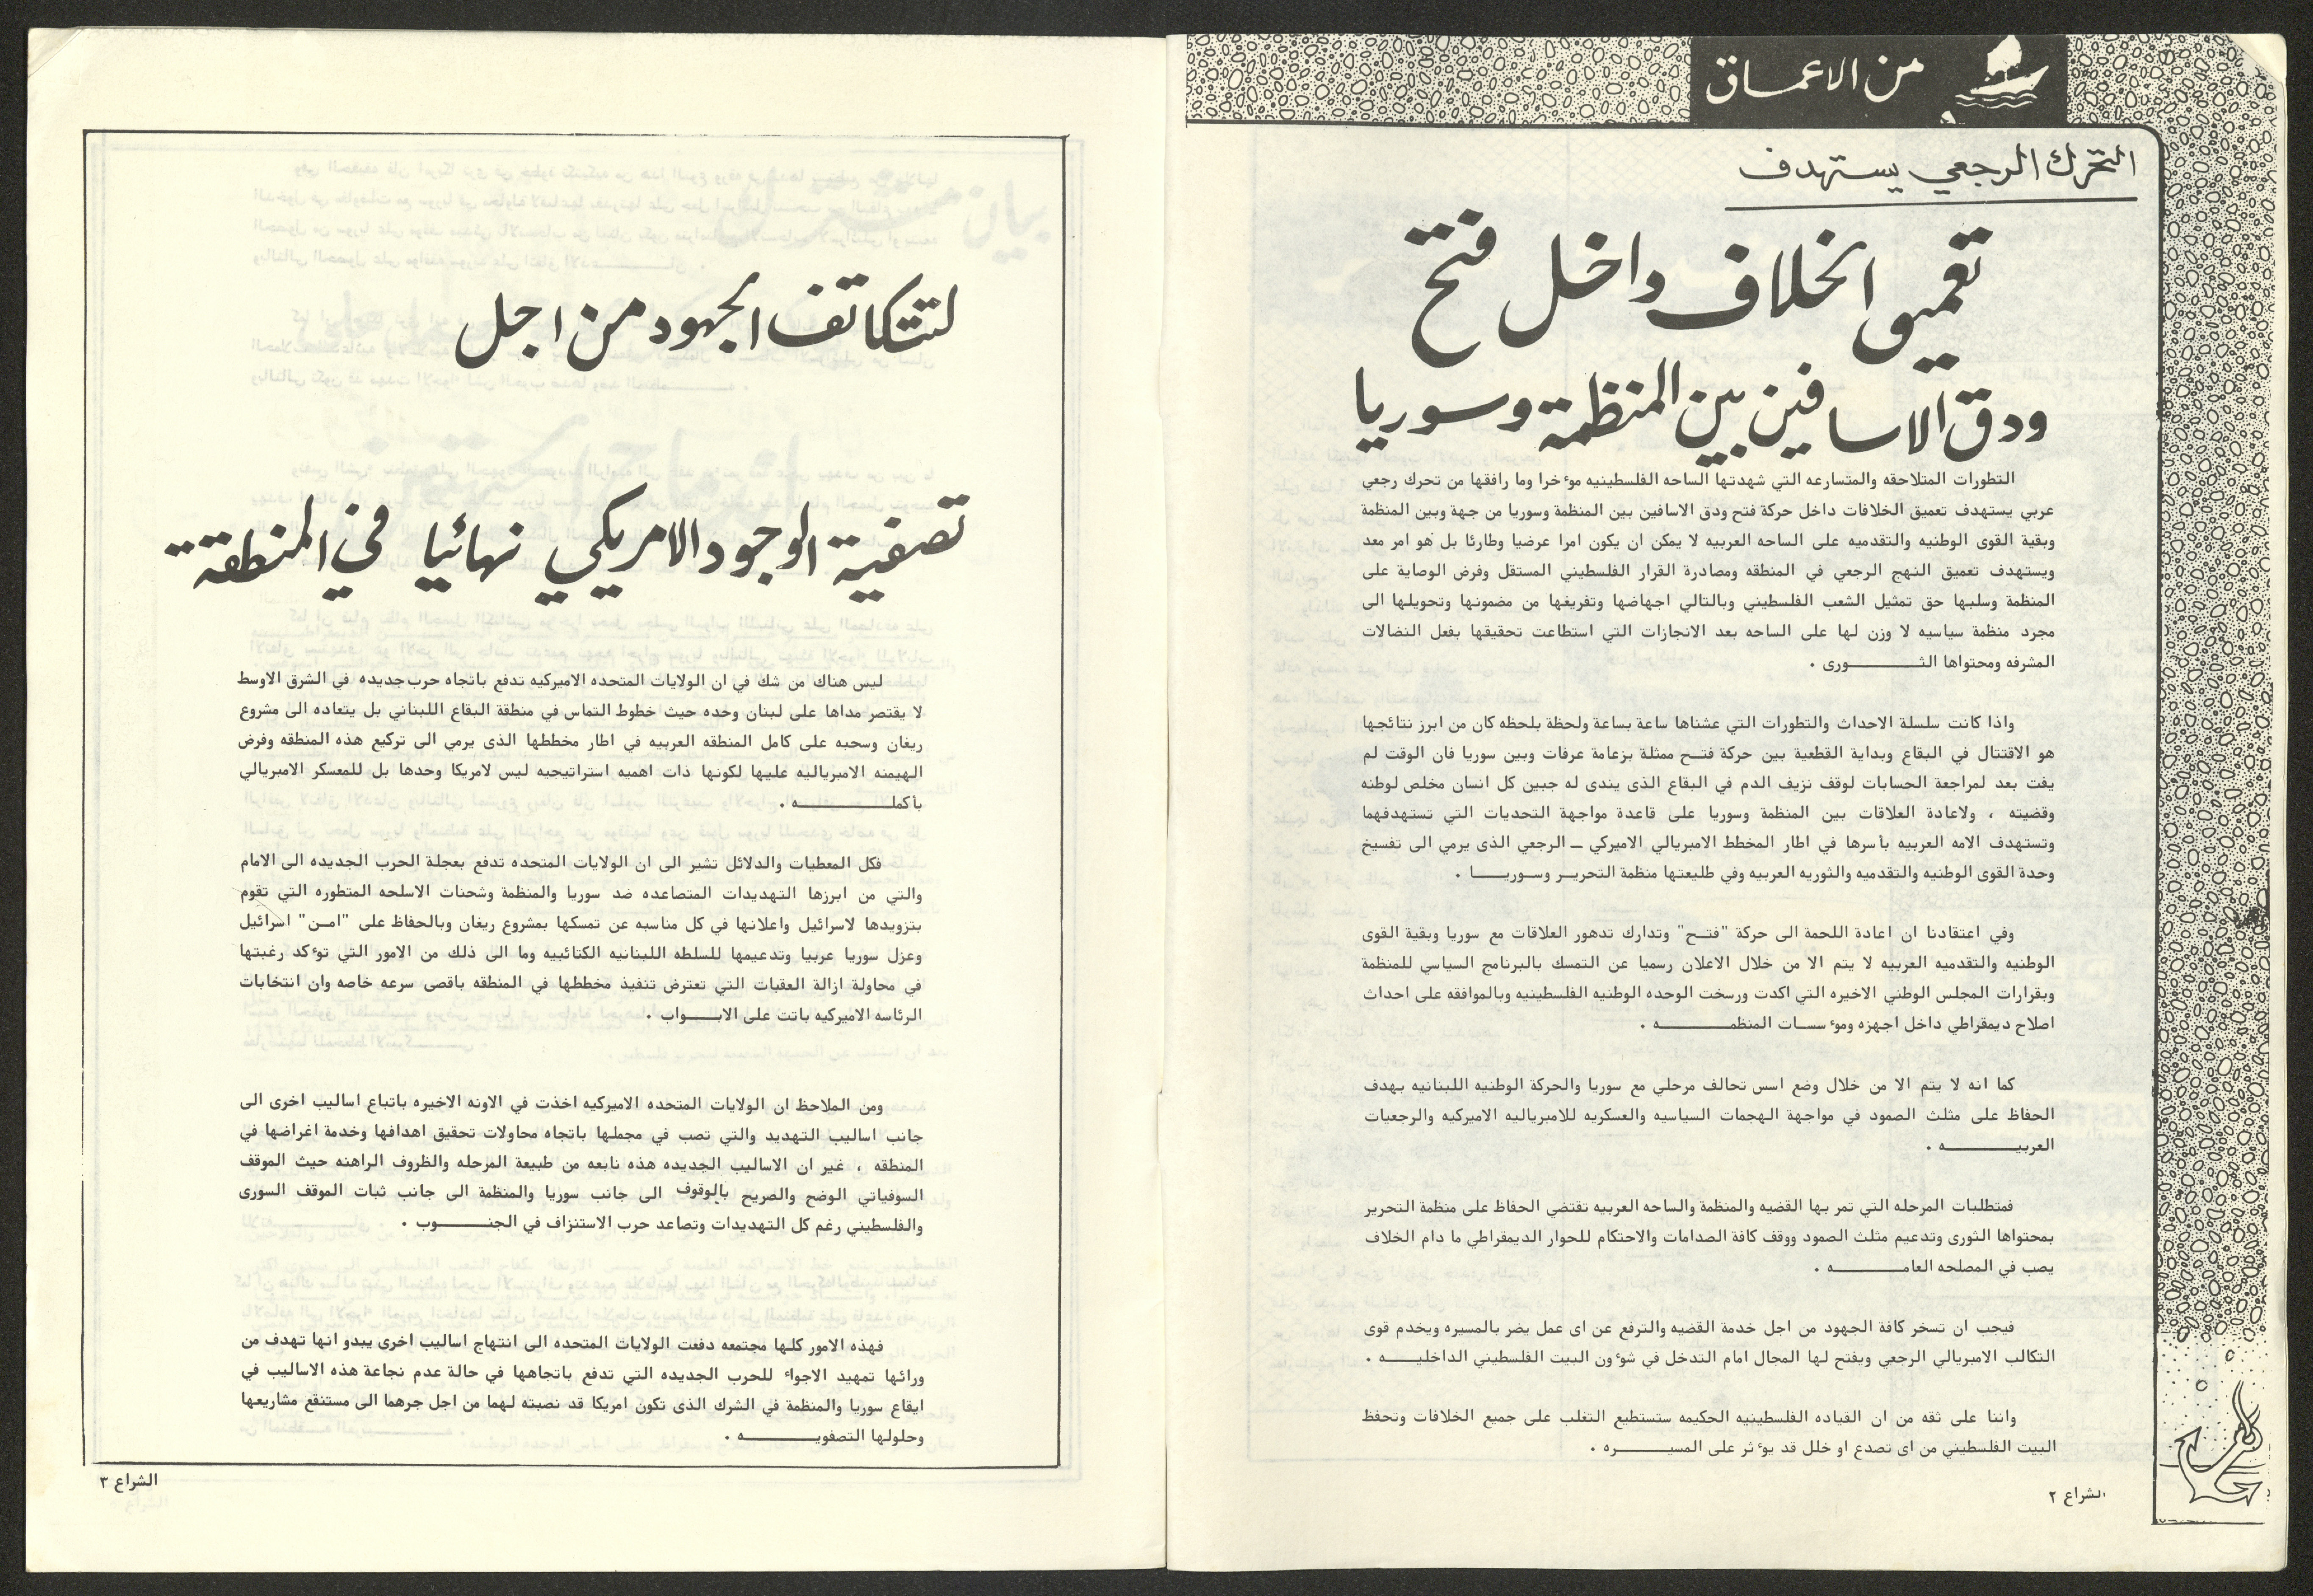 من الاعماق
التحرك الرجعي يستهدف
تعميق الخلاف داخل فتح
ودق الاسافين بين المنظمة وسوريا
التطورات المتلاحقه والمتسارعه التي شهدتها الساحه الفلسطينيه موءخرا وما رافقها من تحرك رجعي
عربي يستهدف تعميق الخلافات داخل حركة فتح ودق الاسافين بين المنظمة وسوريا من جهة وبين المنظمة
وبقية القوى الوطنيه والتقدميه على الساحه العربيه لا يمكن ان يكون امرا عرضيا وطارئا بل هو امر معد
ويستهدف تعميق النهج الرجعي في المنطقه ومصادرة القرار الفلسطيني المستقل وفرض الوصاية على
المنظمة وسلبها حق تمثيل الشعب الفلسطيني وبالتالي اجهاضها وتفريغها من مضمونها وتحويلها الى
مجرد منظمة سياسيه لا وزن لها على الساحه بعد الانجازات التي استطاعت تحقيقها بفعل النضالات
المشرفه ومحتواها الثـــــــورى .
واذا كانت سلسلة الاحداث والتطورات التي عشناها ساعة بساعة ولحظة بلحظه كان من ابرز نتائجها
هو الاقتتال في البقاع وبداية القطعية بين حركة فتــح ممثلة بزعامة عرفات وبين سوريا فان الوقت لم
يفت بعد لمراجعة الحسابات لوقف نزيف الدم في البقاع الذى يندى له جبين كل انسان مخلص لوطنه
وقضيته ، ولاعادة العلاقات بين المنظمة وسوريا على قاعدة مواجهة التحديات التي تستهدفهما
وتستهدف الامه العربيه بأسرها في اطار المخطط الامبريالي الاميركي ــ الرجعي الذى يرمي الى تفسيخ
وحدة القوى الوطنيه والتقدميه والثوريه العربيه وفي طليعتها منظمة التحريــر وسـوريــــا .
وفي اعتقادنا ان اعادة اللحمة الى حركة "فتــح" وتدارك تدهور العلاقات مع سوريا وبقية القوى
الوطنيه والتقدميه العربيه لا يتم الا من خلال الاعلان رسميا عن التمسك بالبرنامج السياسي للمنظمة
وبقرارات المجلس الوطني الاخيره التي اكدت ورسخت الوحده الوطنيه الفلسطينيه وبالموافقه على احداث
اصلاح ديمقراطي داخل اجهزه وموءسسـات المنظمـــــــه .
كما انه لا يتم الا من خلال وضع اسس تحالف مرحلي مع سوريا والحركة الوطنيه اللبنانيه بهدف
الحفاظ على مثلث الصمود في مواجهة الهجمات السياسيه والعسكريه للامبرياليه الاميركيه والرجعيات
العربيـــــــه .
فمتطلبات المرحله التي تمر بها القضيه والمنظمة والساحه العربيه تقتضي الحفاظ على منظمة التحرير
بمحتواها الثورى وتدعيم مثلث الصمود ووقف كافة الصدامات والاحتكام للحوار الديمقراطي ما دام الخلاف
يصب في المصلحه العامـــــــه .
فيجب ان تسخر كافة الجهود من اجل خدمة القضيه والترفع عن اى عمل يضر بالمسيره ويخدم قوى
التكالب الامبريالي الرجعي ويفتح لها المجال امام التدخل في شوءون البيت الفلسطيني الداخليـــــه .
واننا على ثقه من ان القياده الفلسطينيه الحكيمه ستستطيع التغلب على جميع الخلافات وتحفظ
البيت الفلسطيني من اى تصدع او خلل قد يوءثر على المسيــــــره .
الشراع ٢
لتتكاتف الجهود من اجل
تصفية الوجود الامريكي نهائيا في المنطقة
ليس هناك من شك في ان الولايات المتحده الاميركيه تدفع باتجاه حرب جديده في الشرق الاوسط
لا يقتصر مداها على لبنان وحده حيث خطوط التماس في منطقة البقاع اللبناني بل يتعاده الى مشروع
ريغان وسحبه على كامل المنطقه العربيه في اطار مخططها الذى يرمي الى تركيع هذه المنطقه وفرض
الهيمنه الامبرياليه عليها لكونها ذات اهميه استراتيجيه ليس لامريكا وحدها بل للمعسكر الامبريالي
بأكملـــــــــه .
فكل المعطيات والدلائل تشير الى ان الولايات المتحده تدفع بعجلة الحرب الجديده الى الامام
والتي من ابرزها التهديدات المتصاعده ضد سوريا والمنظمة وشحنات الاسلحه المتطوره التي تقوم
بتزويدها لاسرائيل واعلانها في كل مناسبه عن تمسكها بمشروع ريغان وبالحفاظ على "امــن" اسرائيل
وعزل سوريا عربيا وتدعيمها للسلطه اللبنانيه الكتائبيه وما الى ذلك من الامور التي توءكد رغبتها
في محاولة ازالة العقبات التي تعترض تنفيذ مخططها في المنطقه باقصى سرعه خاصه وان انتخابات
الرئاسه الاميركيه باتت على الابـــــواب .
ومن الملاحظ ان الولايات المتحده الاميركيه اخذت في الاونه الاخيره باتباع اساليب اخرى الى
جانب اساليب التهديد والتي تصب في مجملها باتجاه محاولات تحقيق اهدافها وخدمة اغراضها في
المنطقه ، غير ان الاساليب الجديده هذه نابعه من طبيعة المرحله والظروف الراهنه حيث الموقف
السوفياتي الوضح والصريح بالوقوف الى جانب سوريا والمنظمة الى جانب ثبات الموقف السورى
والفلسطيني رغم كل التهديدات وتصاعد حرب الاستنزاف في الجنــــــوب .
فهذه الامور كلها مجتمعه دفعت الولايات المتحده الى انتهاج اساليب اخرى يبدو انها تهدف من
ورائها تمهيد الاجواء للحرب الجديده التي تدفع باتجاهها في حالة عدم نجاعة هذه الاساليب في
ايقاع سوريا والمنظمة في الشرك الذى تكون امريكا قد نصبته لهما من اجل جرهما الى مستنقع مشاريعها
وحلولها التصفويـــــــه .
الشراع ٣